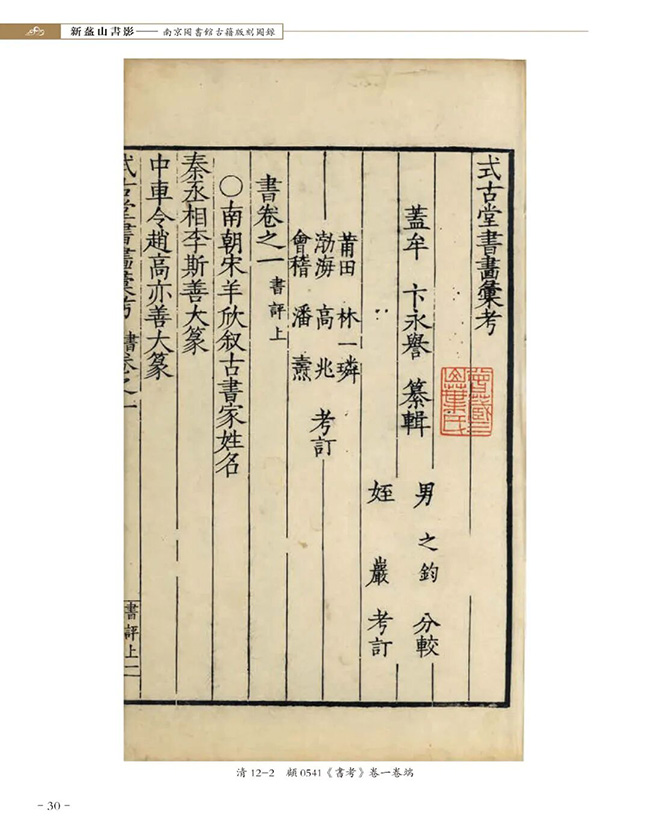 新盋山書影——南京圖書館古籍版刻圖錄
式古堂書畫彙考
蓋牟 卞永譽 纂輯
男 之鈞 分較
姪 巖 考訂
莆田 林一璘
渤海 高兆 考訂
會稽 潘燾
書卷之一 書評上
○南朝宋羊欣叙古書家姓名
秦丞相李斯善大篆
中車令趙高亦善大篆
式古堂書畫彙考 書卷之一
書評上 一
清 12-2 顧 0541《書考》卷一卷端
- 30 -